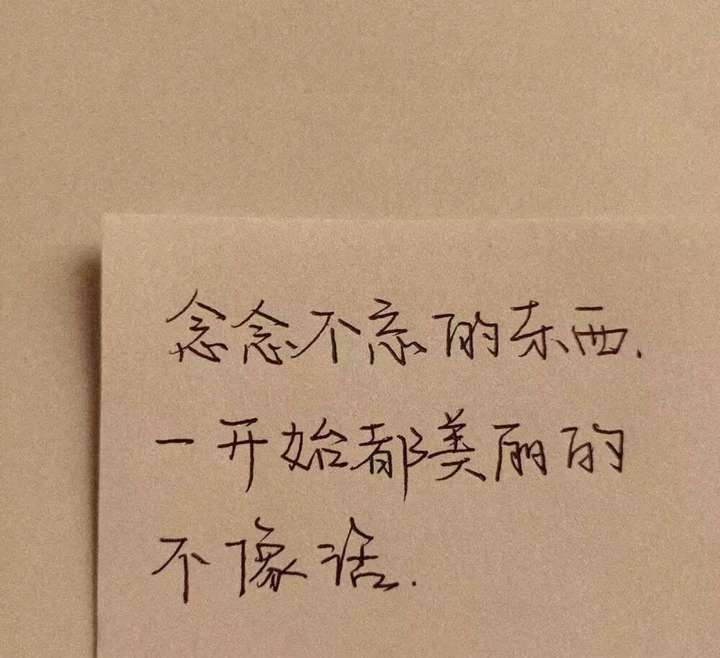 念念不忘的东西.
一开始都美丽的
不像话.